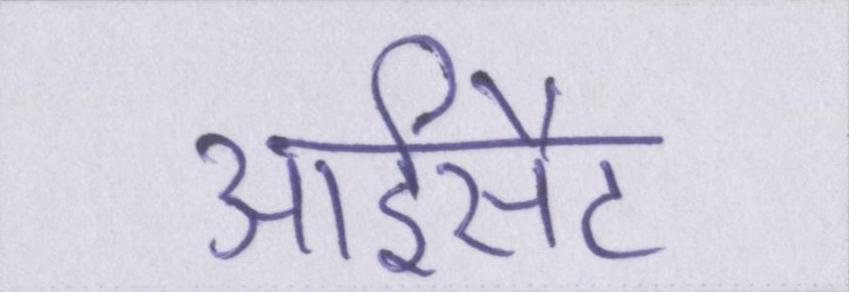 आईसैट